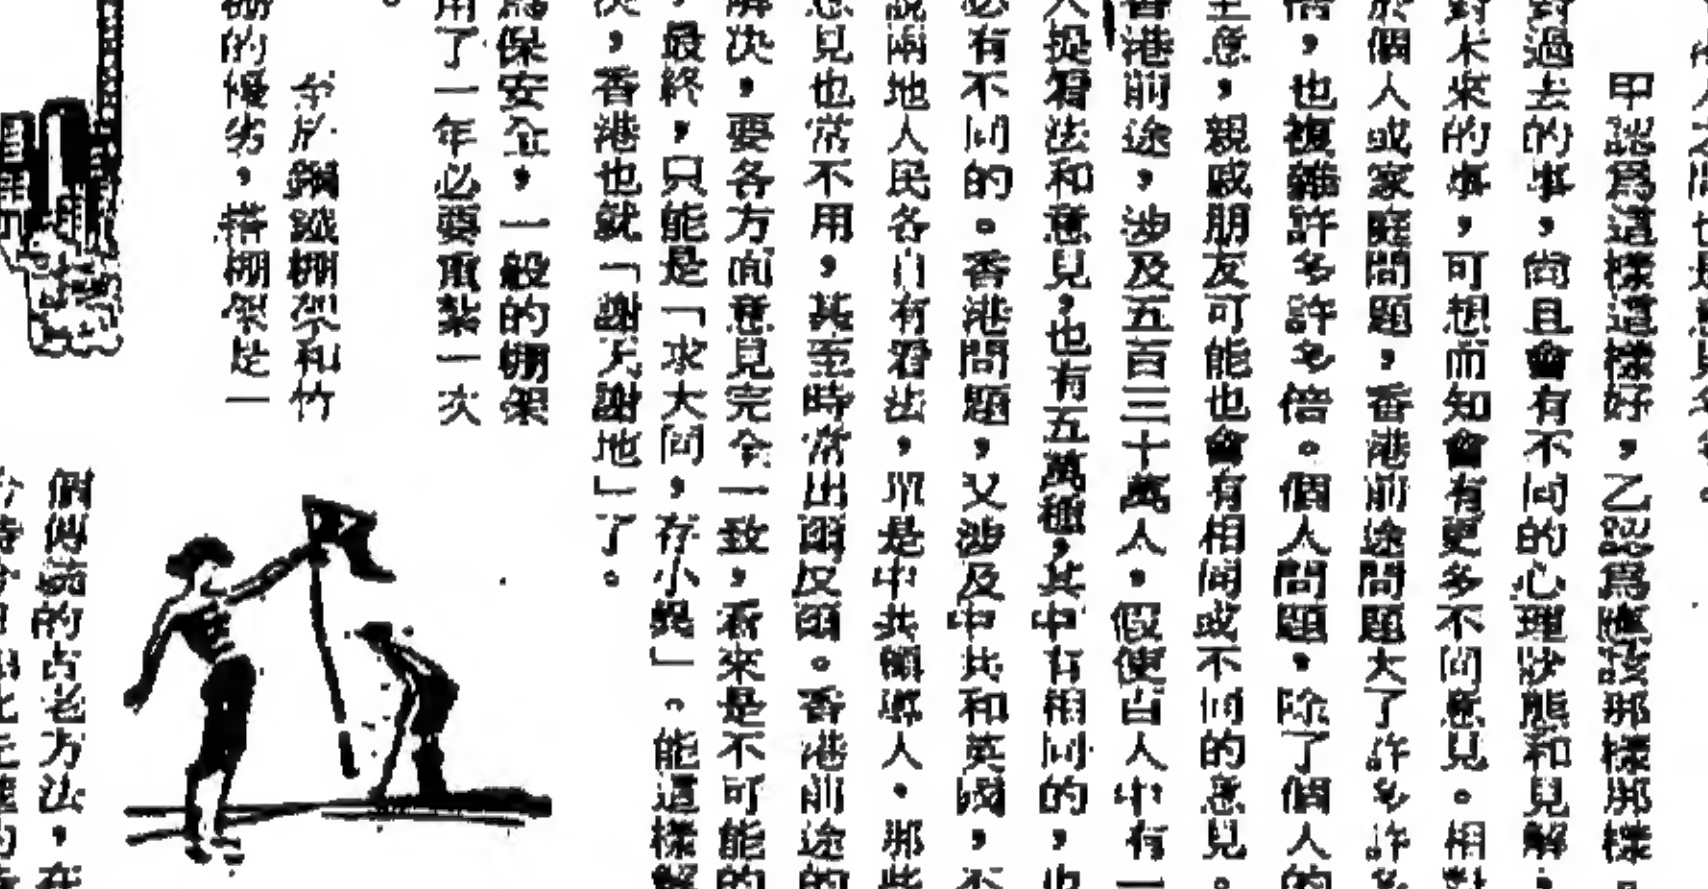 甲認爲這樣這樣好，乙認爲應該那樣那樣。
對過去的事，尙且會有不同的心理狀態和見解，
對未來的事，可想而知會有更多不同意見。相對
於個人或家庭問題，香港前途問題大了許多許多
倍，也複雜許多許多倍。個人問題，除了個人的
主意，親戚朋友可能也會有相同或不同的意見。
香港前途，涉及五百三十萬人。假使百人中有一
人提看法和意見，也有五萬種，其中有相同的，也
必有不同的。香港問題，又涉及中共和英國，不
說兩地人民各自有看法，單是中共領導人，那些
意見也常不用，甚至時常出爾反爾。香港前途的
解決，要各方面意見完全一致，看來是不可能的
，最終，只能是「求大同，存小異」。能這樣解
決，香港也就「謝天謝地」了。
爲保安全，一般的棚架
用了一年必要重紮一次
。
至於鋼鐵棚架和竹
棚的優劣，搭棚架是一
個傳統的古老方法，在